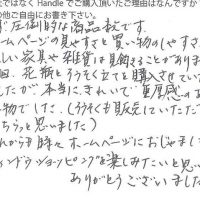 ではなく Handle でご購入頂いたご理由はなんですか
の他ご自由にお書き下さい。
圧倒的な商品数です。
ームページの見やすさと買い物のしやすさ
しい家具や雑貨を見ることがありま
回、花瓶とろうそく立てを購入させていた
たが本当にきれいで重厚感のあ
物でした。(ろうそくも販売していただ
ちらっと思いました)
れからも時々ホームページにおじゃまして
ィンドウショッピングを楽しみたいと思い
ありがとうございました